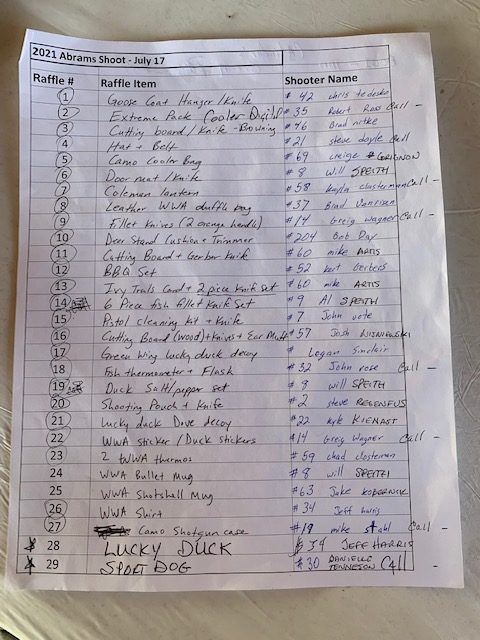 2021 Abrams Shoot - July 17
Raffle # Raffle Item Shooter Name
1 Goose Coat Hanger / Knife # 42 Chris tedesko
2 Extreme Pack Cooler # 35 Robert Ross Call -
3 Cutting board / Knife - Browning # 76 Brad nitke
4 Hat + Belt # 21 steve doyle Call
5 Camo Cooler Bag # 69 GRIGNON
6 Door mat / Knife # 8 Will SPEITH
7 Coleman lantern # 58 Kayla clusterman Call -
8 Leather WWA duffle bag # 37 Brad
9 Fillet Knives (2 orange handle) # 14 Greig Wagner Call -
10 Deer Stand Cushion + Trimmer # 204 Bob Day
11 Cutting Board + Gerber Knife # 60 mike ARTIS
12 BBQ Set # 52 kurt Gerbers
13 Ivy Trails Card + 2 piece Knife set # 60 mike ARTIS
14 6 Piece fish fillet Knife Set # 9 Al SPEITH
15 Pistol cleaning kit + Knife # 7 John vote
16 Cutting Board (wood) + Knives + Ear Muff # 57 Josh
17 Green Wing lucky duck decoy # Logan Sinclair
18 Fish thermometer + Flash # 32 John rose Call -
19 Duck Salt/pepper set # 9 will SPEITH
20 Shooting Pouch + Knife # 2 steve REGENFUS
21 Lucky duck Dove decoy # 22 kyle KIENAST
22 WWA sticker / Duck stickers # 14 Greig Wagner Call -
23 2 WWA thermos # 59 chad Closterman
24 WWA Bullet Mug # 8 will SPEITH
25 WWA Shotshell Mug # 63 Jake
26 WWA Shirt # 34 Jeff harris
27 Camo Shotgun case # 19 mike stahl Call -
28 LUCKY DUCK # 34 JEFF HARRIS
29 SPORT DOG # 30 DANIELLE TENNESON Call -